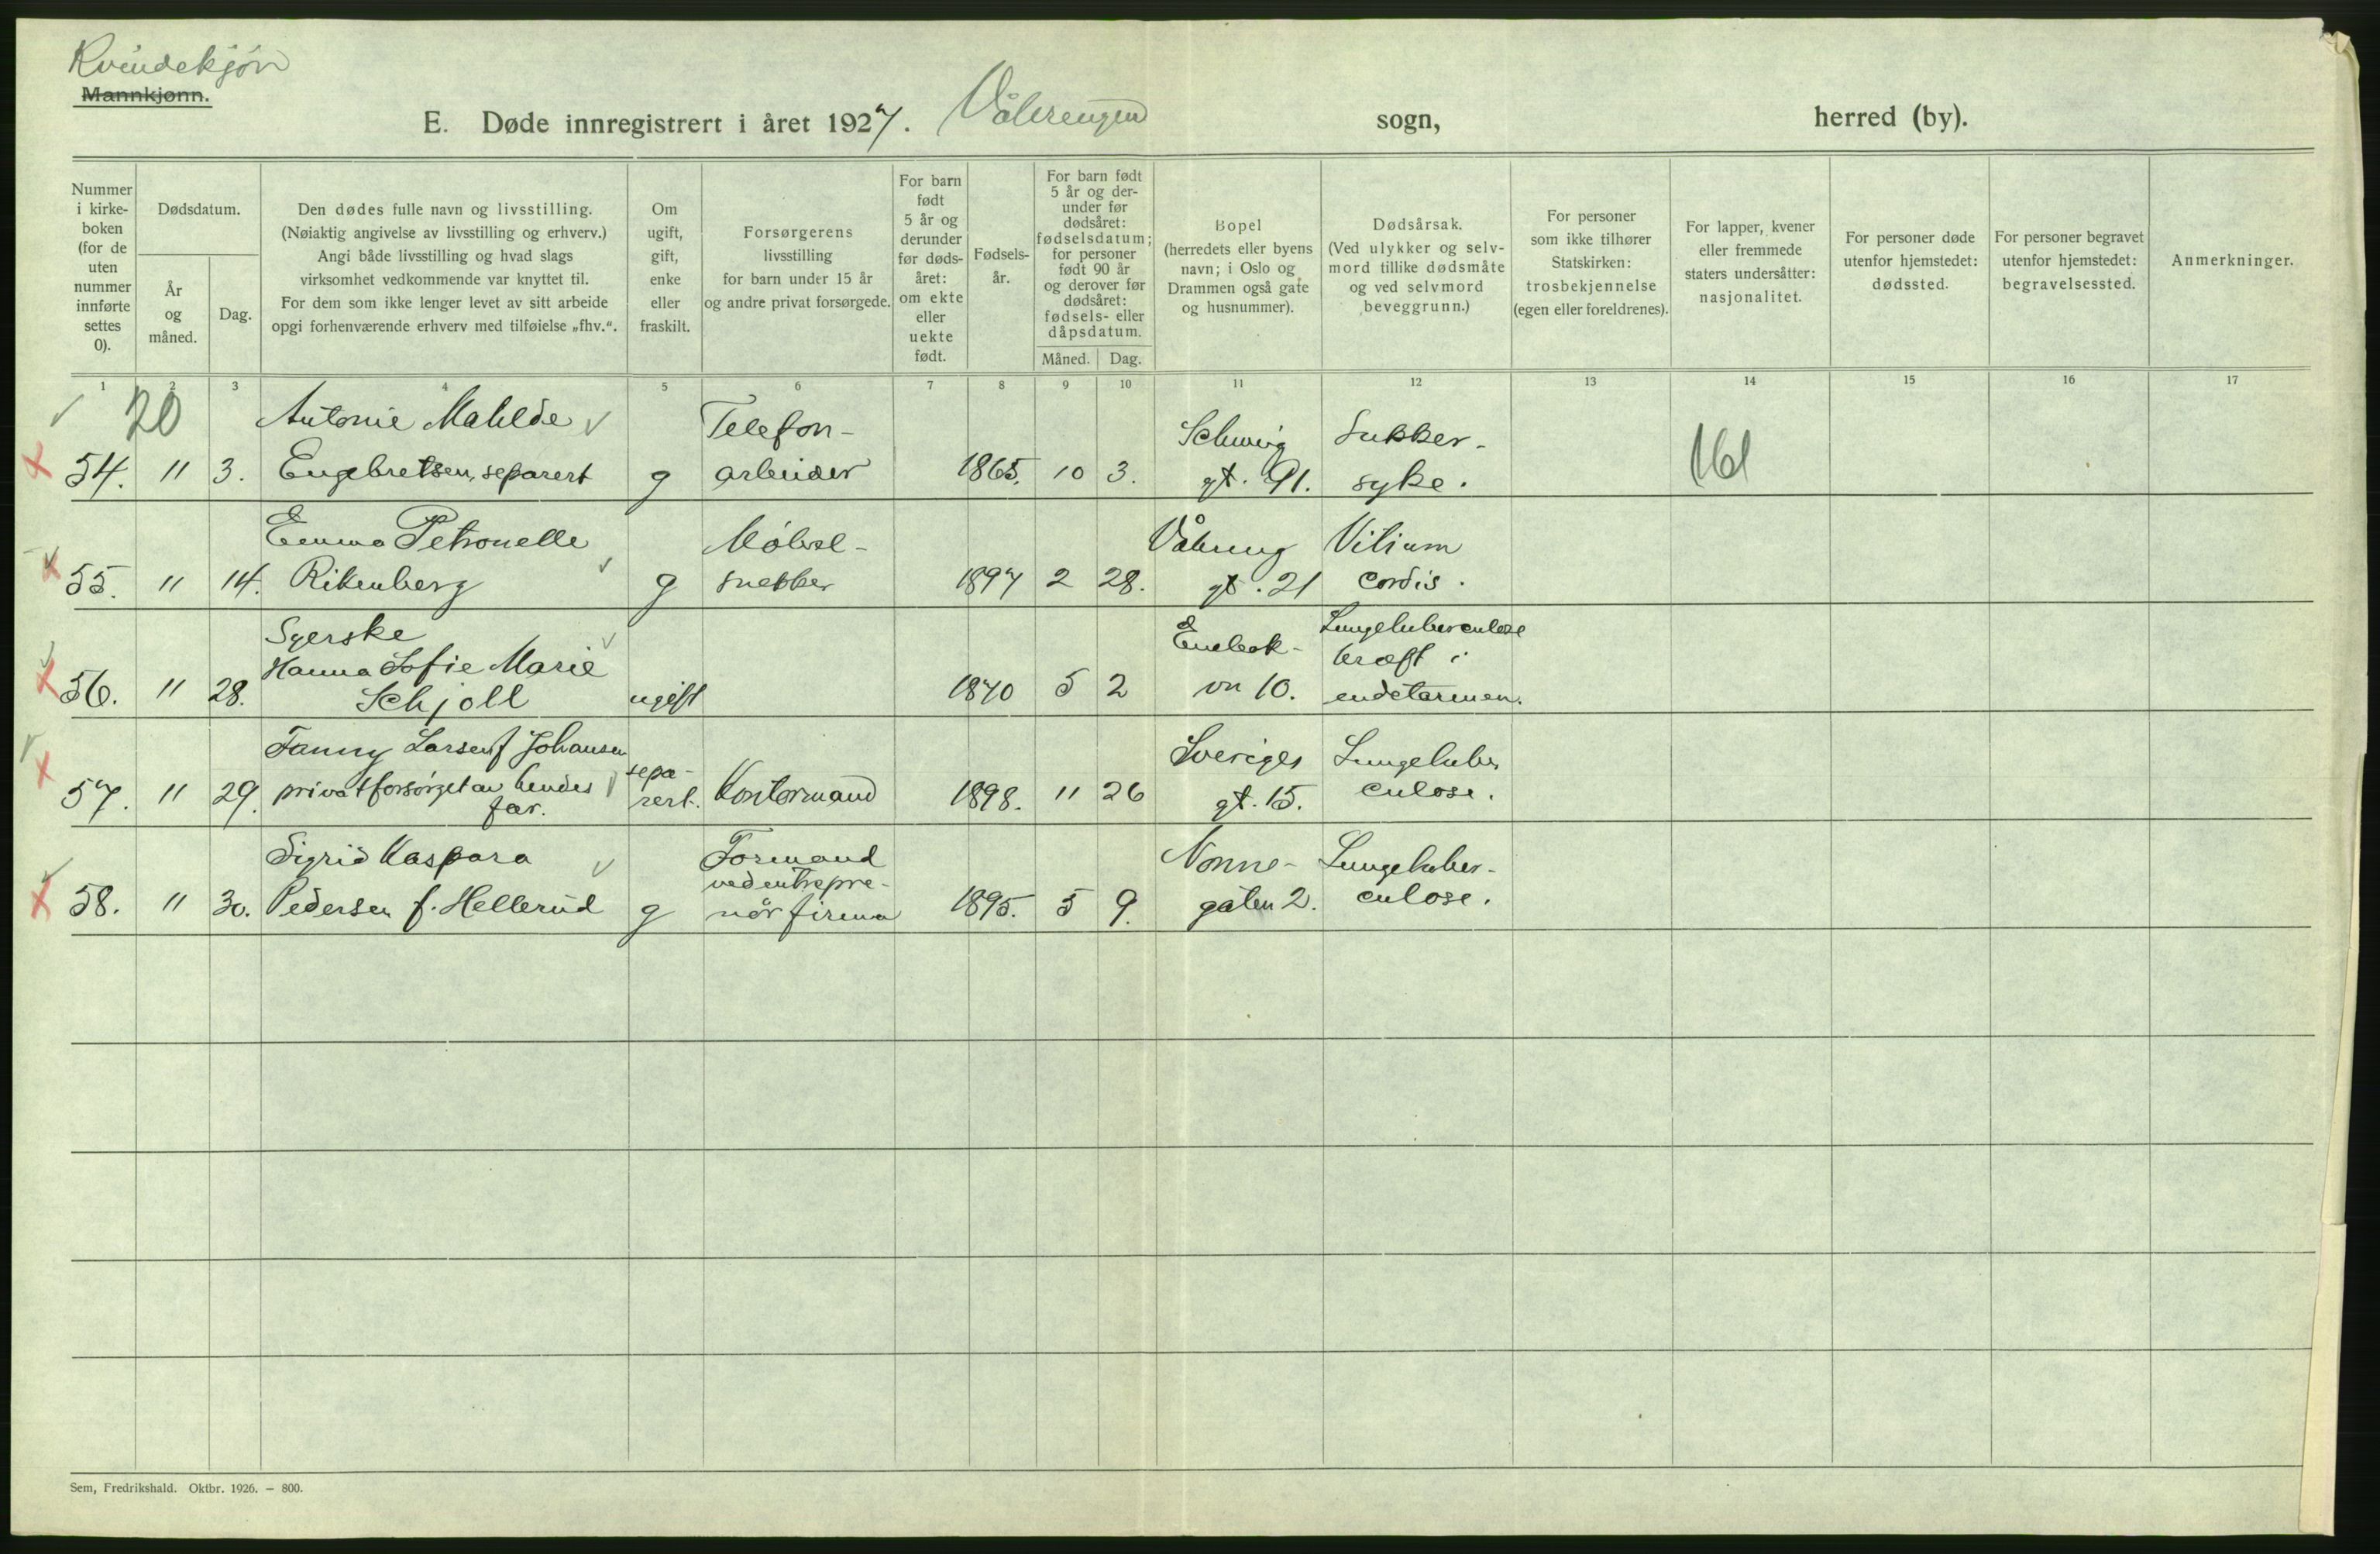 Kvindekjøn
Mannkjønn.
E. Døde innregistrert i året 1927. Vålerengen sogn, herred (by).
Nummer
i kirke-
boken
(for de
uten
nummer
innførte
settes
0).
Dødsdatum.
År
og
måned.
Dag.
Den dødes fulle navn og livsstilling.
(Nøiaktig angivelse av livsstilling og erhverv.)
Angi både livsstilling og hvad slags
virksomhet vedkommende var knyttet til.
For dem som ikke lenger levet av sitt arbeide
opgi forhenværende erhverv med tilføielse „fhv.“.
Om
ugift,
gift,
enke
eller
fraskilt.
Forsørgerens
livsstilling
for barn under 15 år
og andre privat forsørgede.
For barn
født
5 år og
derunder
før døds-
året:
om ekte
eller
uekte
født.
Fødsels-
år.
For barn født
5 år og der-
under før
dødsåret:
fødselsdatum;
for personer
født 90 år
og derover før
dødsåret:
fødsels- eller
dåpsdatum.
Måned. Dag.
Bopel
(herredets eller byens
navn; i Oslo og
Drammen også gate
og husnummer).
Dødsårsak.
(Ved ulykker og selv-
mord tillike dødsmåte
og ved selvmord
beveggrunn.)
For personer
som ikke tilhører
Statskirken:
trosbekjennelse
(egen eller foreldrenes).
For lapper, kvener
eller fremmede
staters undersåtter:
nasjonalitet.
For personer døde
utenfor hjemstedet:
dødssted.
For personer begravet
utenfor hjemstedet:
begravelsessted.
Anmerkninger.
1 2 3 4 5 6 7 8 9 10 11 12 13 14 15 16 17
20 Antonie Mahlde Telefon- Schweig Sukker-
54. 11 3. Engebretsen, separert g arbeider 1865. 10 3. gt. 91. syke. 161
Emma Petronelle Møbel- Vålereng Vitium
55. 11 14. Rikenberg g snekker 1897 2 28. gt. 21 cordis.
Syerske Lungetuberculose
Hanna Sofie Marie Enebak- kræft i
56. 11 28. Schjoll ugift 1870 5 2 vn 10. endetarmen.
Fanny Larsen f Johansen Sveriges Lungetuber
57. 11 29. privatforsørget av hendes sepa- Kontormand 1898. 11 26 gt. 15. culose.
far. rert.
Sigrid Kaspara Formand Nonne- Lungetuber-
ved entrepre-
58. 11 30. Pedersen f. Hellerud g nør firma 1895. 5 9. gaten 2. culose.
Sem, Fredrikshald. Oktbr. 1926. — 800.